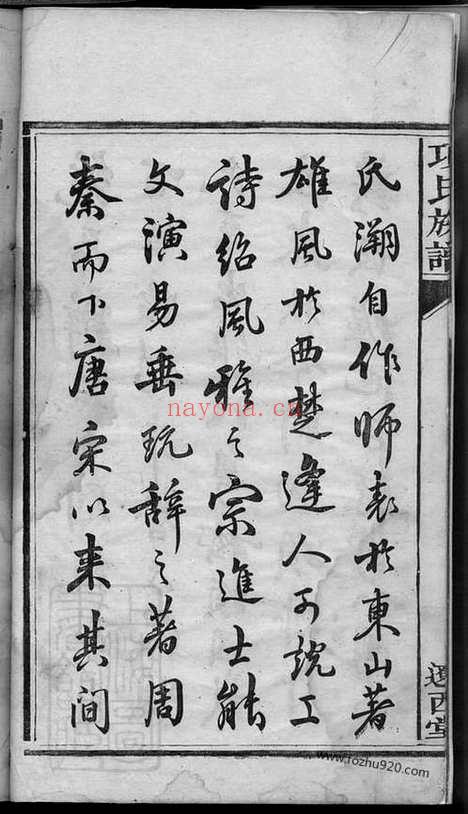 項氏族譜
遼西堂
氏溯自作師表於東山著
雄風於西楚逢人可說工
詩紹風雅之宗進士能
文演易垂玩辞之著周
秦而下唐宋以来其間
nayona.cn
www.fozhu920.com